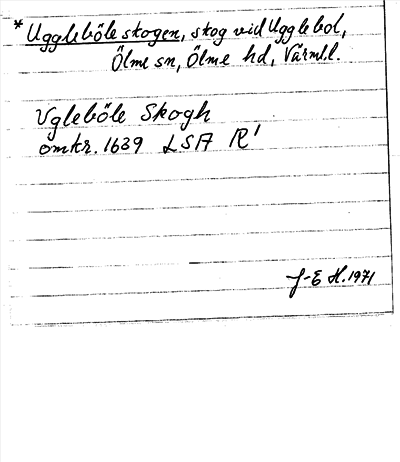 * Uggleböle skogen, skog vid Ugglebol,
Ölme sn, Ölme hd, Värml.
Ugleböle Skogh
omkr. 1639 LSA R'
J-E H. 1971